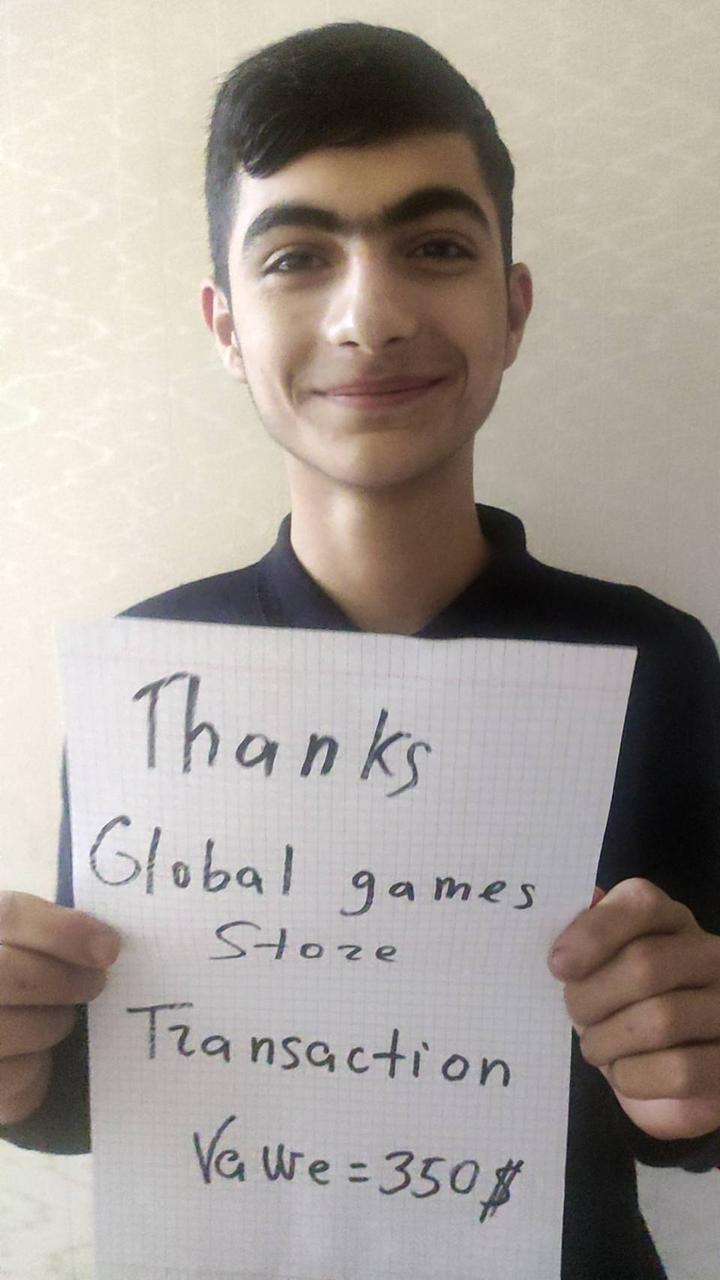 Thanks
Global games
Store
Transaction
Value = 350 $